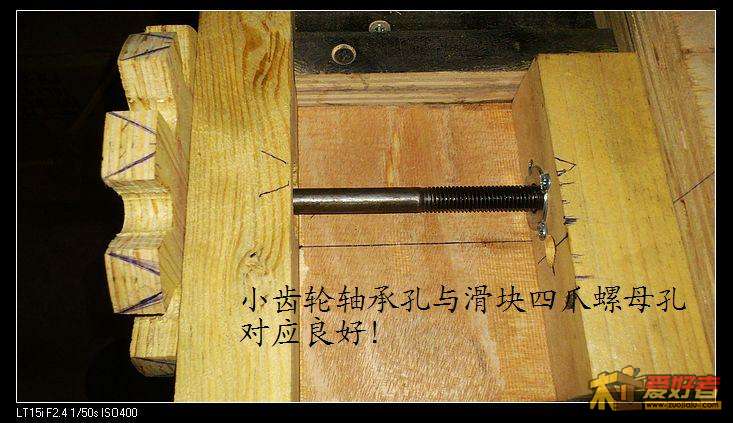 小齿轮轴承孔与滑块四爪螺母孔
对应良好！
LT15i F2.4 1/50s ISO400
木工爱好者
www.zuojiaju.com